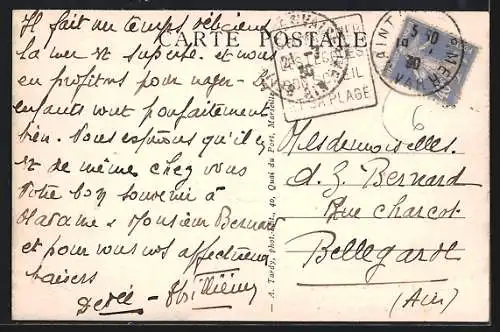 CARTE POSTALE
Il fait un temps délicieux
la mer est superbe et nous
en profitons pour nager
enfants vont parfaitement
bien. Nous espérons qu'il en
est de même chez vous
Notre bon souvenir à
Madame & Monsieur Bernard
et pour vous nos affectueux
baisers
Dédée
SOLEIL
SA PLAGE
SAINT
5 30
30
MER
VAR
6
Mesdemoiselles.
A. Z. Bernard
Rue Charcot
Bellegarde
(Ain)
A. Tardy, phot.-édit., 40, Quai du Port, Marseille